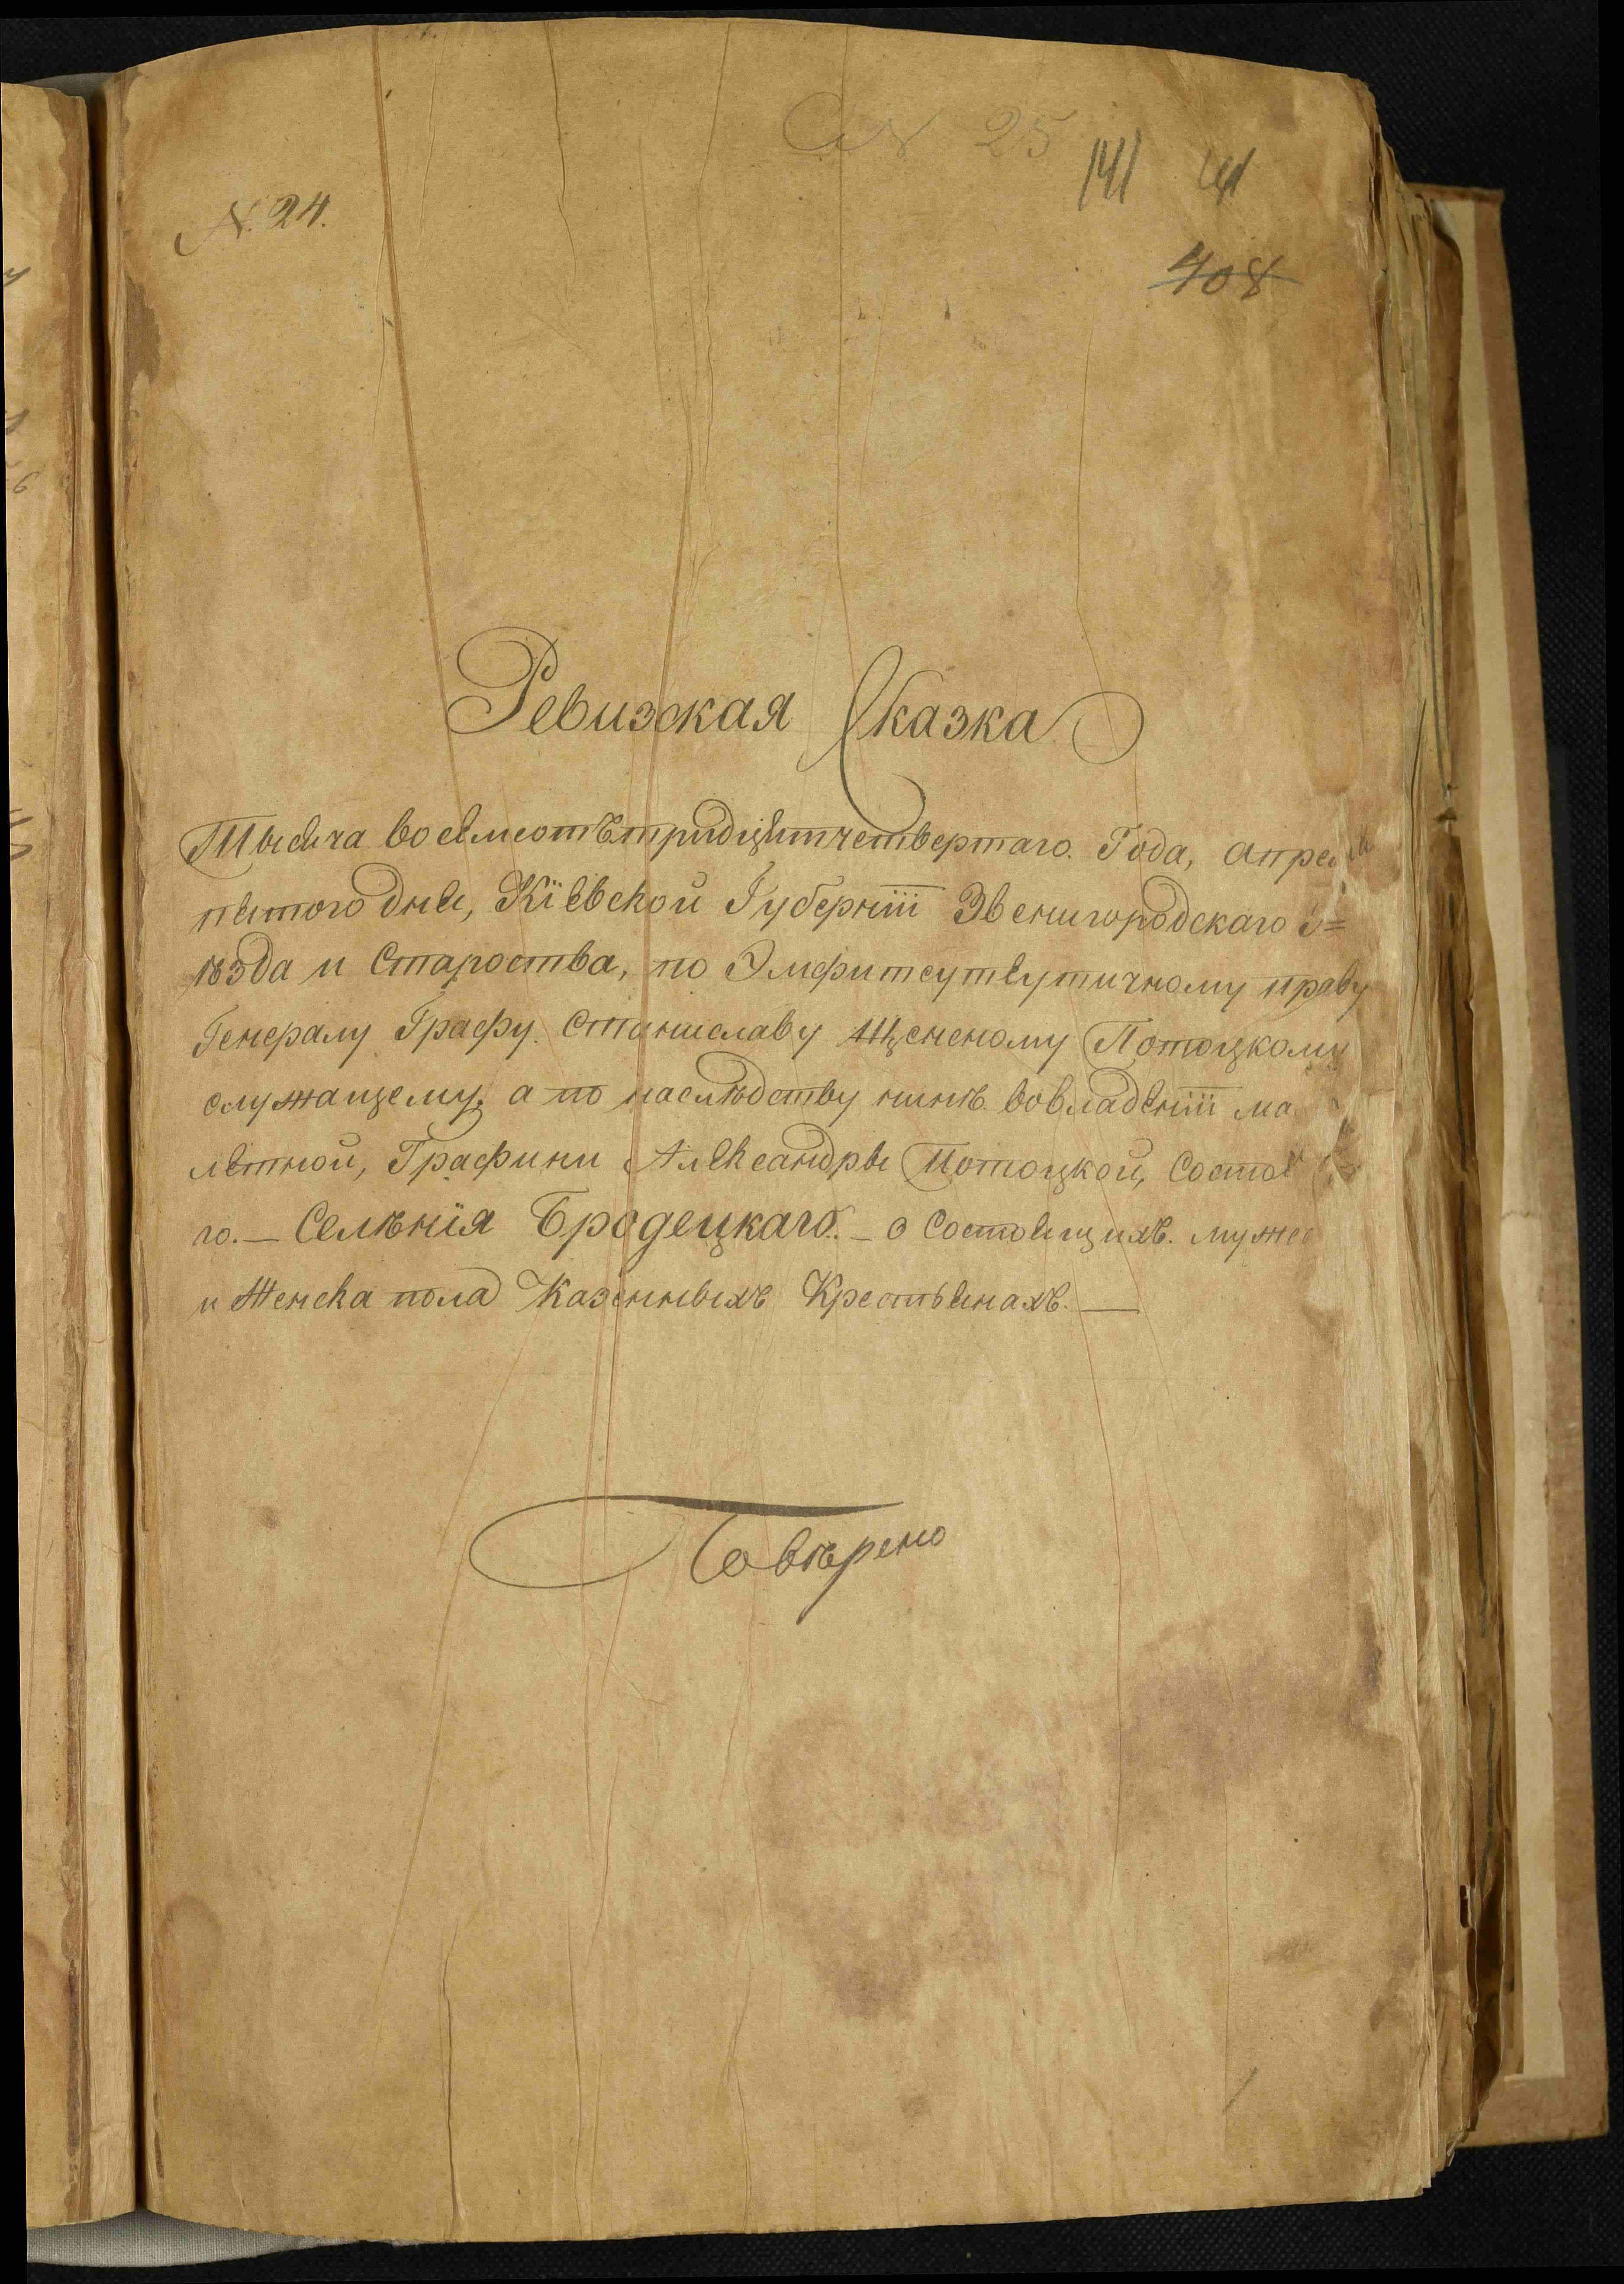 № 25
141
N. 24.
408
Ревизская Сказка
Тысяча восемсотъ тридцять четвертаго. Года, апреля
пятого дня, Кіевской Губерніи Звенигородскаго у=
ѣзда и Староства, по Эмфитеутвутичному праву
Генералу Графу Станиславу Щенсному Потоцкому
служащему, а по наслѣдству нинѣ во владеніи ма
летной, Графини Александры Потоцкой, Состо
го. — Селѣнїя Бродецкаго. — о Состоящихъ. мужес
и Женска пола Казенныхъ Крестьянахъ. —
Повѣрено